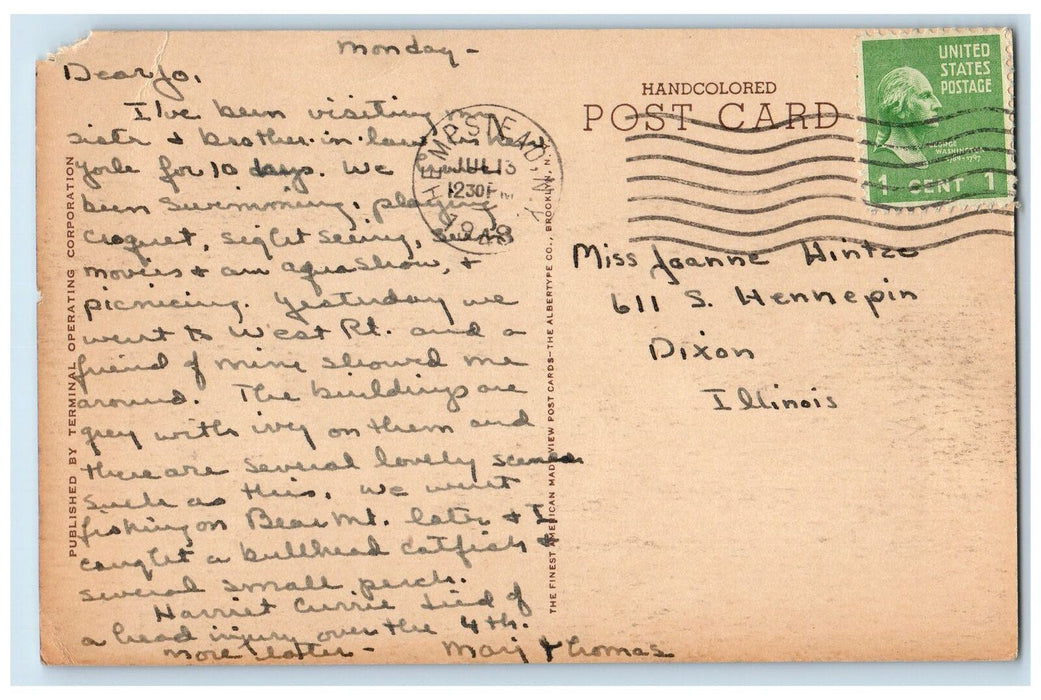 Monday -
Dear Jo,
I've been visiting my
sister & brother-in-law in New
York for 10 days. We have
been swimming, playing
croquet, sight seeing, seeing
movies & an aqua show, &
picnicing. Yesterday we
went to West Pt. and a
friend of mine showed me
around. The buildings are
grey with ivy on them and
there are several lovely scenes
such as this. We went
fishing on Bear Mt. later & I
caught a bullhead catfish &
several small perch.
Harriet Currie died of
a head injury over the 4th.
More later -
Marj Thomas
PUBLISHED BY TERMINAL OPERATING CORPORATION
THE FINEST AMERICAN MADE VIEW POST CARDS—THE ALBERTYPE CO., BROOKLYN, N.Y.
HEMPSTEAD, N.Y.
JUL 13
1230 PM
HANDCOLORED
POST CARD
UNITED
STATES
POSTAGE
GEORGE
WASHINGTON
1 CENT 1
Miss Joanne Hintze
611 S. Hennepin
Dixon
Illinois